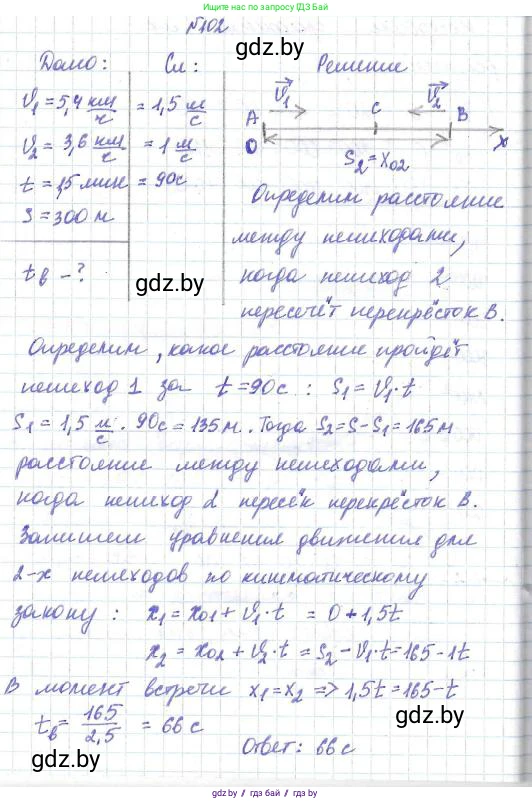 Больше решебников и ответов - переходи по ссылке или найди по запросу "gdz.by ГДЗ бай"
№102
gdz.by
Дано: Си: Решение
V₁=5,4 км/ч = 1,5 м/с
V₂=3,6 км/ч = 1 м/с
t=1,5 мин = 90с
S=300 м
t_в - ?
V₁ V₂
A C B
O x
S₂=x₀₂
gdz.by
Определим расстояние
между пешеходами,
когда пешеход 2
пересечёт перекрёсток В.
Определим, какое расстояние пройдёт
пешеход 1 за t=90с : S₁=V₁·t
S₁=1,5 м/с · 90с = 135м. Тогда S₂=S-S₁=165м
расстояние между пешеходами,
когда пешеход 2 пересёк перекрёсток В.
Запишем уравнения движения для
2-х пешеходов по кинематическому
закону: x₁=x₀₁+V₁·t = 0+1,5t
x₂=x₀₂+V₂·t=S₂-V₁·t=165-1t
В момент встречи x₁=x₂ => 1,5t=165-t
t_в=165/2,5 = 66 с
gdz.by
Ответ: 66 с
gdz.by
gdz.by / гдз бай / gdz.by